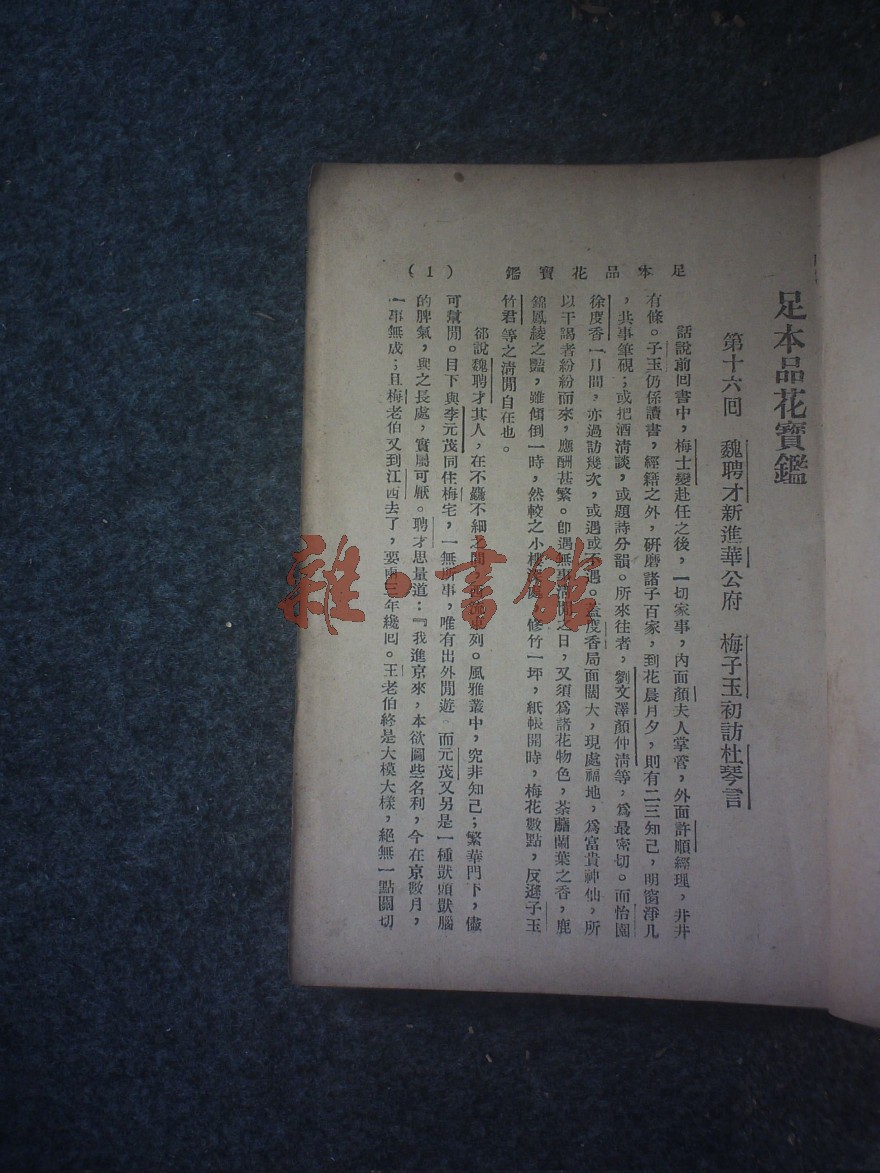 足本品花寶鑑
第十六回　魏聘才新進華公府　梅子玉初訪杜琴言
足本品花寶鑑　(1)
話說前回書中，梅士燮赴任之後，一切家事，內面顏夫人掌管，外面許順經理，井井
有條。子玉仍係讀書，經籍之外，研磨諸子百家，到花晨月夕，則有二三知己，明窗淨几
，共事筆硯；或把酒清談，或題詩分韻。所來往者，劉文澤顏仲清等，爲最密切。而怡園
徐度香一月間，亦過訪幾次，或遇或不遇。蓋度香局面闊大，現處福地，爲富貴神仙，所
以干謁者紛紛而來，應酬甚繁。卽遇無事清閒之日，又須爲諸花物色，荼蘼蘭葉之香，鹿
錦鳳綾之豔，雖傾倒一時，然較之小樓深處，修竹一坪，紙帳開時，梅花數點，反遜子玉
竹君等之清閒自在也。
郤說魏聘才其人，在不麤不細之間，西流東列。風雅叢中，究非知己；繁華門下，儘
可幫閒。目下與李元茂同住梅宅，一無所事，唯有出外閒遊。而元茂又另是一種獃頭獃腦
的脾氣，與之長處，實屬可厭。聘才思量道：『我進京來，本欲圖些名利，今在京數月，
一事無成；且梅老伯又到江西去了，要兩三年纔囘。王老伯終是大模大樣，絕無一點關切
雜·書館